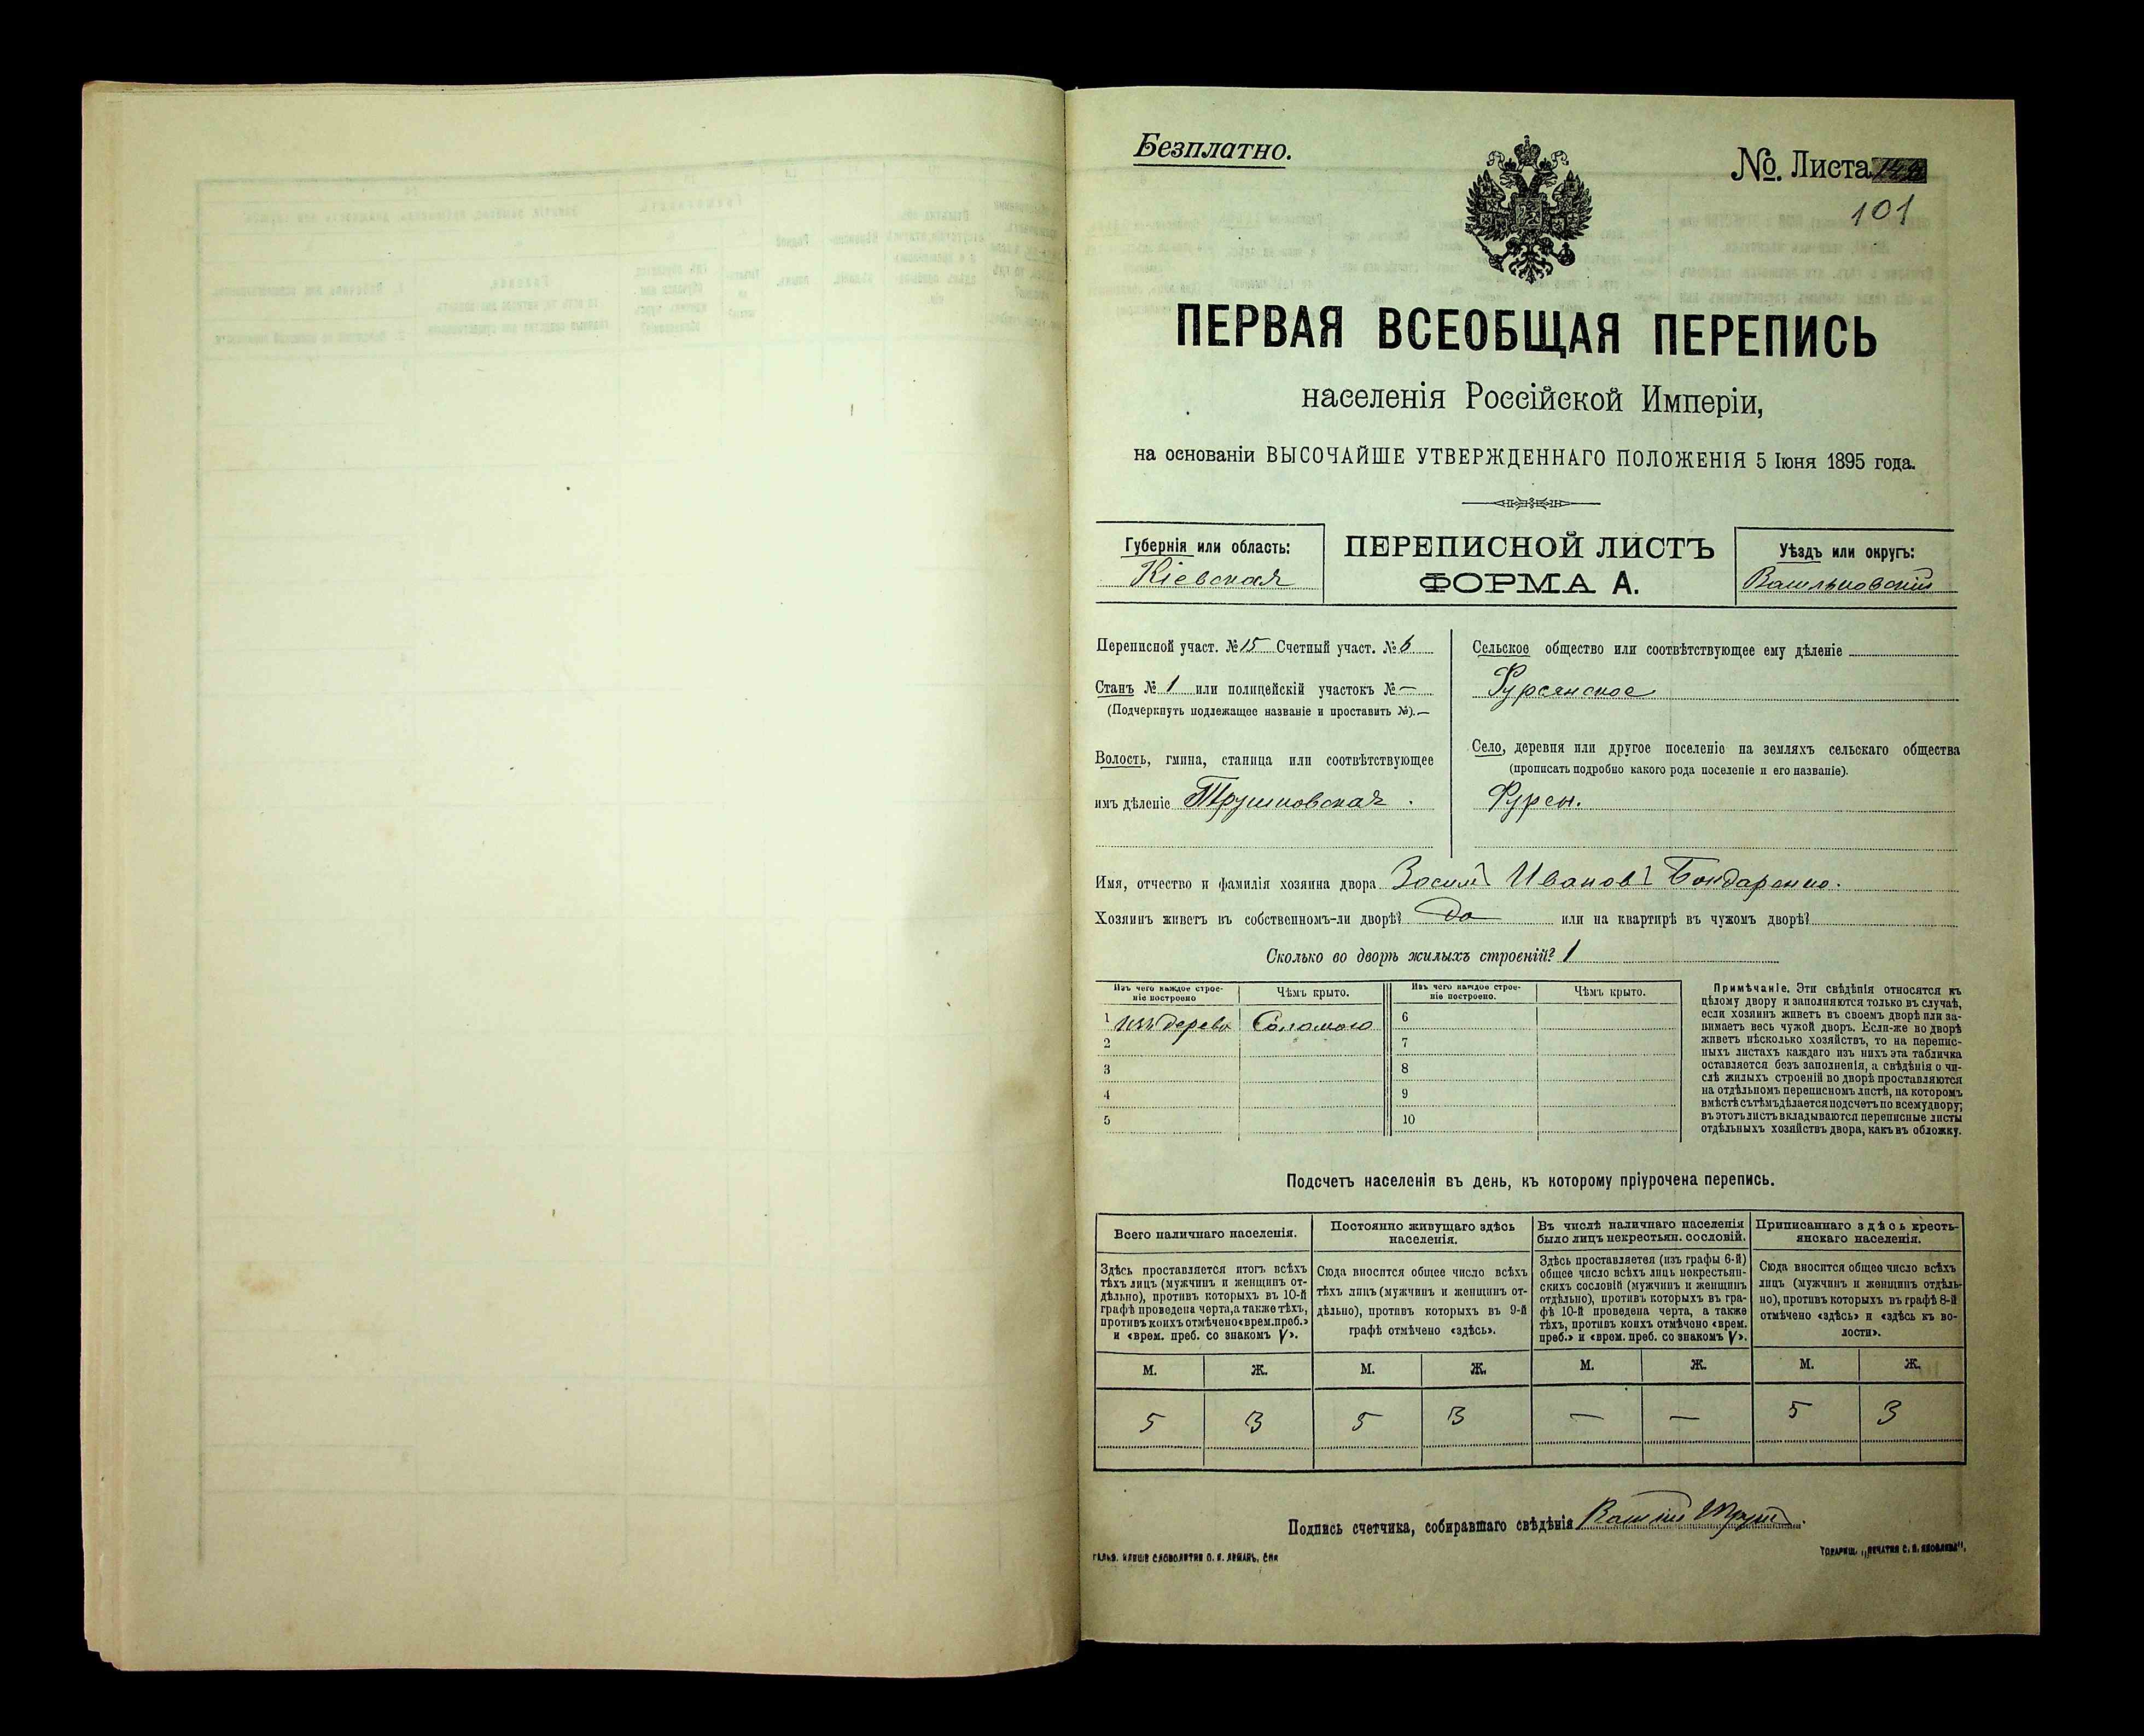 Безплатно.
№. Листа
101
ПЕРВАЯ ВСЕОБЩАЯ ПЕРЕПИСЬ
населенія Россійской Имперіи,
на основаніи ВЫСОЧАЙШЕ УТВЕРЖДЕННАГО ПОЛОЖЕНІЯ 5 Іюня 1895 года.
Губернія или область:
Кіевская
ПЕРЕПИСНОЙ ЛИСТЪ
ФОРМА А.
Уѣздъ или округъ:
Васильковскій
Переписной участ. № 15 Счетный участ. № 6
Станъ № 1 или полицейскій участокъ № —
(Подчеркнуть подлежащее названіе и проставить №).—
Волость, гмина, станица или соотвѣтствующее
имъ дѣленіе Трушковская.
Сельское общество или соотвѣтствующее ему дѣленіе
Фурсянское
Село, деревня или другое поселеніе на земляхъ сельскаго общества
(прописать подробно какого рода поселеніе и его названіе).
Фурсы.
Имя, отчество и фамилія хозяина двора Зосимъ Ивановъ Бондаренко.
Хозяинъ живетъ въ собственномъ-ли дворѣ? Да или на квартирѣ въ чужомъ дворѣ?
Сколько во дворѣ жилыхъ строеній? 1
Изъ чего каждое строе-
ніе построено
Чѣмъ крыто.
Изъ чего каждое строе-
ніе построено.
Чѣмъ крыто.
1 изъ дерева Соломою 6
2 7
3 8
4 9
5 10
Примѣчаніе. Эти свѣдѣнія относятся къ
цѣлому двору и заполняются только въ случаѣ,
если хозяинъ живетъ въ своемъ дворѣ или за-
нимаетъ весь чужой дворъ. Если-же во дворѣ
живетъ нѣсколько хозяйствъ, то на перепис-
ныхъ листахъ каждаго изъ нихъ эта табличка
оставляется безъ заполненія, а свѣдѣнія о чи-
слѣ жилыхъ строеній во дворѣ проставляются
на отдѣльномъ переписномъ листѣ, на которомъ
вмѣстѣ съ тѣмъ дѣлается подсчетъ по всему двору;
въ этотъ листъ вкладываются переписные листы
отдѣльныхъ хозяйствъ двора, какъ въ обложку.
Подсчетъ населенія въ день, къ которому пріурочена перепись.
Всего наличнаго населенія.
Здѣсь проставляется итогъ всѣхъ
тѣхъ лицъ (мужчинъ и женщинъ от-
дѣльно), противъ которыхъ въ 10-й
графѣ проведена черта, а также тѣхъ,
противъ коихъ отмѣчено «врем. преб.»
и «врем. преб. со знакомъ V».
Постоянно живущаго здѣсь
населенія.
Сюда вносится общее число всѣхъ
тѣхъ лицъ (мужчинъ и женщинъ от-
дѣльно), противъ которыхъ въ 9-й
графѣ отмѣчено «здѣсь».
Въ числѣ наличнаго населенія
было лицъ некрестьян. сословій.
Здѣсь проставляется (изъ графы 6-й)
общее число всѣхъ лицъ некрестьян-
скихъ сословій (мужчинъ и женщинъ
отдѣльно), противъ которыхъ въ гра-
фѣ 10-й проведена черта, а также
тѣхъ, противъ коихъ отмѣчено «врем.
преб.» и «врем. преб. со знакомъ V».
Приписаннаго здѣсь кресть-
янскаго населенія.
Сюда вносится общее число всѣхъ
лицъ (мужчинъ и женщинъ отдѣль-
но), противъ которыхъ въ графѣ 8-й
отмѣчено «здѣсь» и «здѣсь къ во-
лости».
М. Ж. М. Ж. М. Ж. М. Ж.
5 3 5 3 — — 5 3
Подпись счетчика, собиравшаго свѣдѣнія
ГАЛЬВ. КЛИШЕ СЛОВОЛИТНИ О. И. ЛЕМАНЪ, СПБ
ТОВАРИЩ. „ПЕЧАТНЯ С. П. ЯКОВЛЕВА".